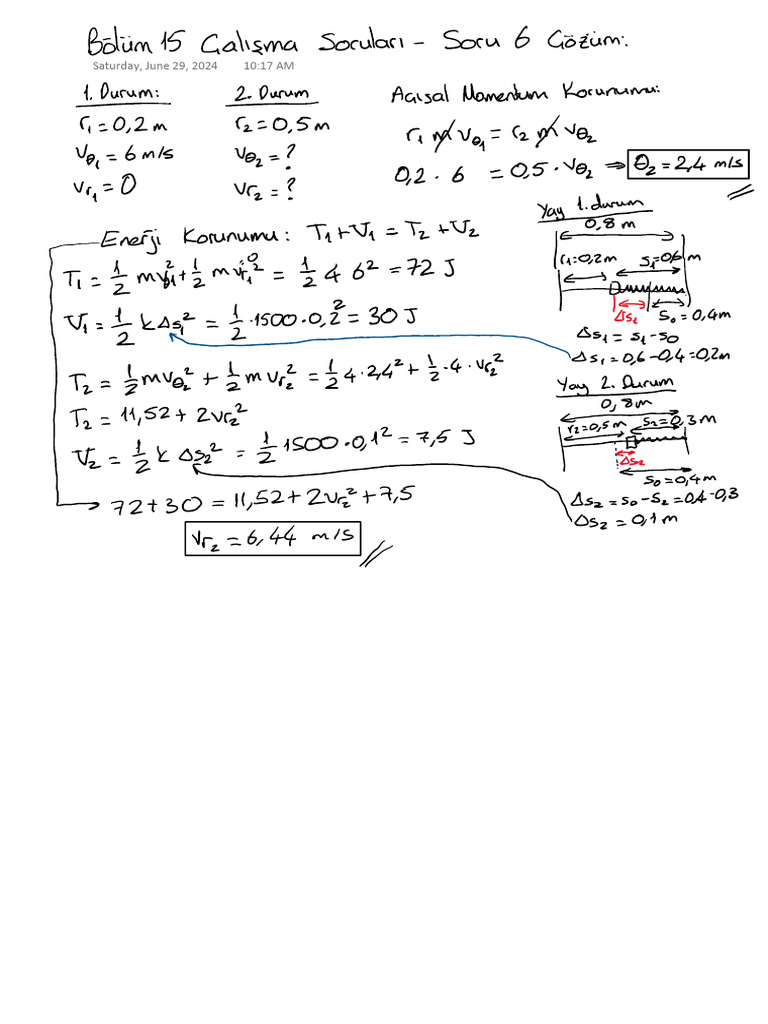 Bölüm 15 Çalışma Soruları - Soru 6 Çözüm:
Saturday, June 29, 2024 10:17 AM
1. Durum:
r₁ = 0,2 m
Vθ₁ = 6 m/s
Vr₁ = 0
2. Durum
r₂ = 0,5 m
Vθ₂ = ?
Vr₂ = ?
Açısal Momentum Korunumu:
r₁ m vθ₁ = r₂ m vθ₂
0,2 · 6 = 0,5 · vθ₂ ⇒ θ₂ = 2,4 m/s
Enerji Korunumu: T₁ + V₁ = T₂ + V₂
T₁ = 1/2 m vθ₁² + 1/2 m vr₁² 0 = 1/2 4 6² = 72 J
V₁ = 1/2 k Δs₁² = 1/2 · 1500 · 0,2² = 30 J
T₂ = 1/2 m vθ₂² + 1/2 m vr₂² = 1/2 4 · 2,4² + 1/2 · 4 · vr₂²
T₂ = 11,52 + 2vr₂²
V₂ = 1/2 k Δs₂² = 1/2 1500 · 0,1² = 7,5 J
72 + 30 = 11,52 + 2vr₂² + 7,5
Vr₂ = 6,44 m/s
Yay 1. durum
0,8 m
r₁=0,2m s₁=0,6 m
Δs₁ s₀ = 0,4m
Δs₁ = s₁ - s₀
Δs₁ = 0,6 - 0,4 = 0,2m
Yay 2. Durum
0,8 m
r₂=0,5 m s₂=0,3 m
Δs₂
s₀ = 0,4 m
Δs₂ = s₀ - s₂ = 0,4 - 0,3
Δs₂ = 0,1 m